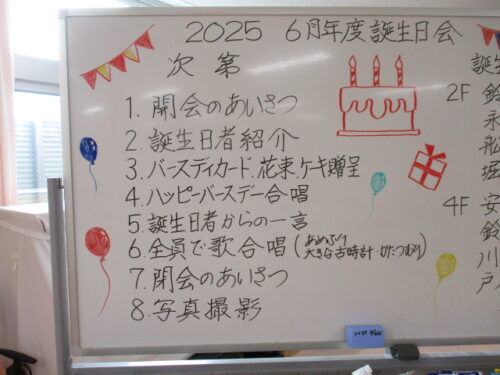 2025 6月年度誕生日会
次第
1. 開会のあいさつ
2. 誕生日者紹介
3. バースデイカード、花束、ケーキ贈呈
4. ハッピーバースデー合唱
5. 誕生日者からの一言
6. 全員で歌合唱(あめふり
大きな古時計・かたつむり)
7. 閉会のあいさつ
8. 写真撮影
誕生
2F 鈴
永
船
堀
4F 安
鈴
川
戸